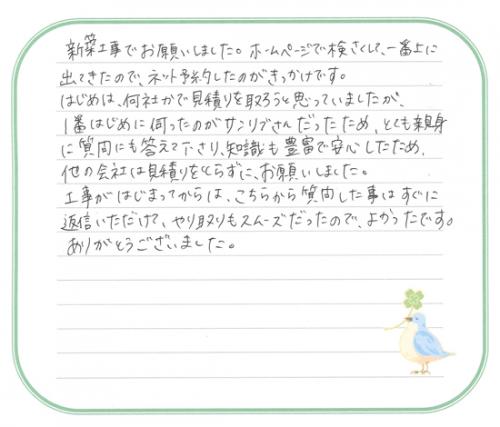 新築工事でお願いしました。ホームページで検さくして、一番上に
出てきたので、ネット予約したのがきっかけです。
はじめは、何社かで見積りを取ろうと思っていましたが、
1番はじめに伺ったのがサンリブさんだったため、とても親身
に質問にも答えて下さり、知識も豊富で安心したため、
他の会社は見積りをとらずに、お願いしました。
工事がはじまってからは、こちらから質問した事はすぐに
返信いただけて、やり取りもスムーズだったので、よかったです。
ありがとうございました。